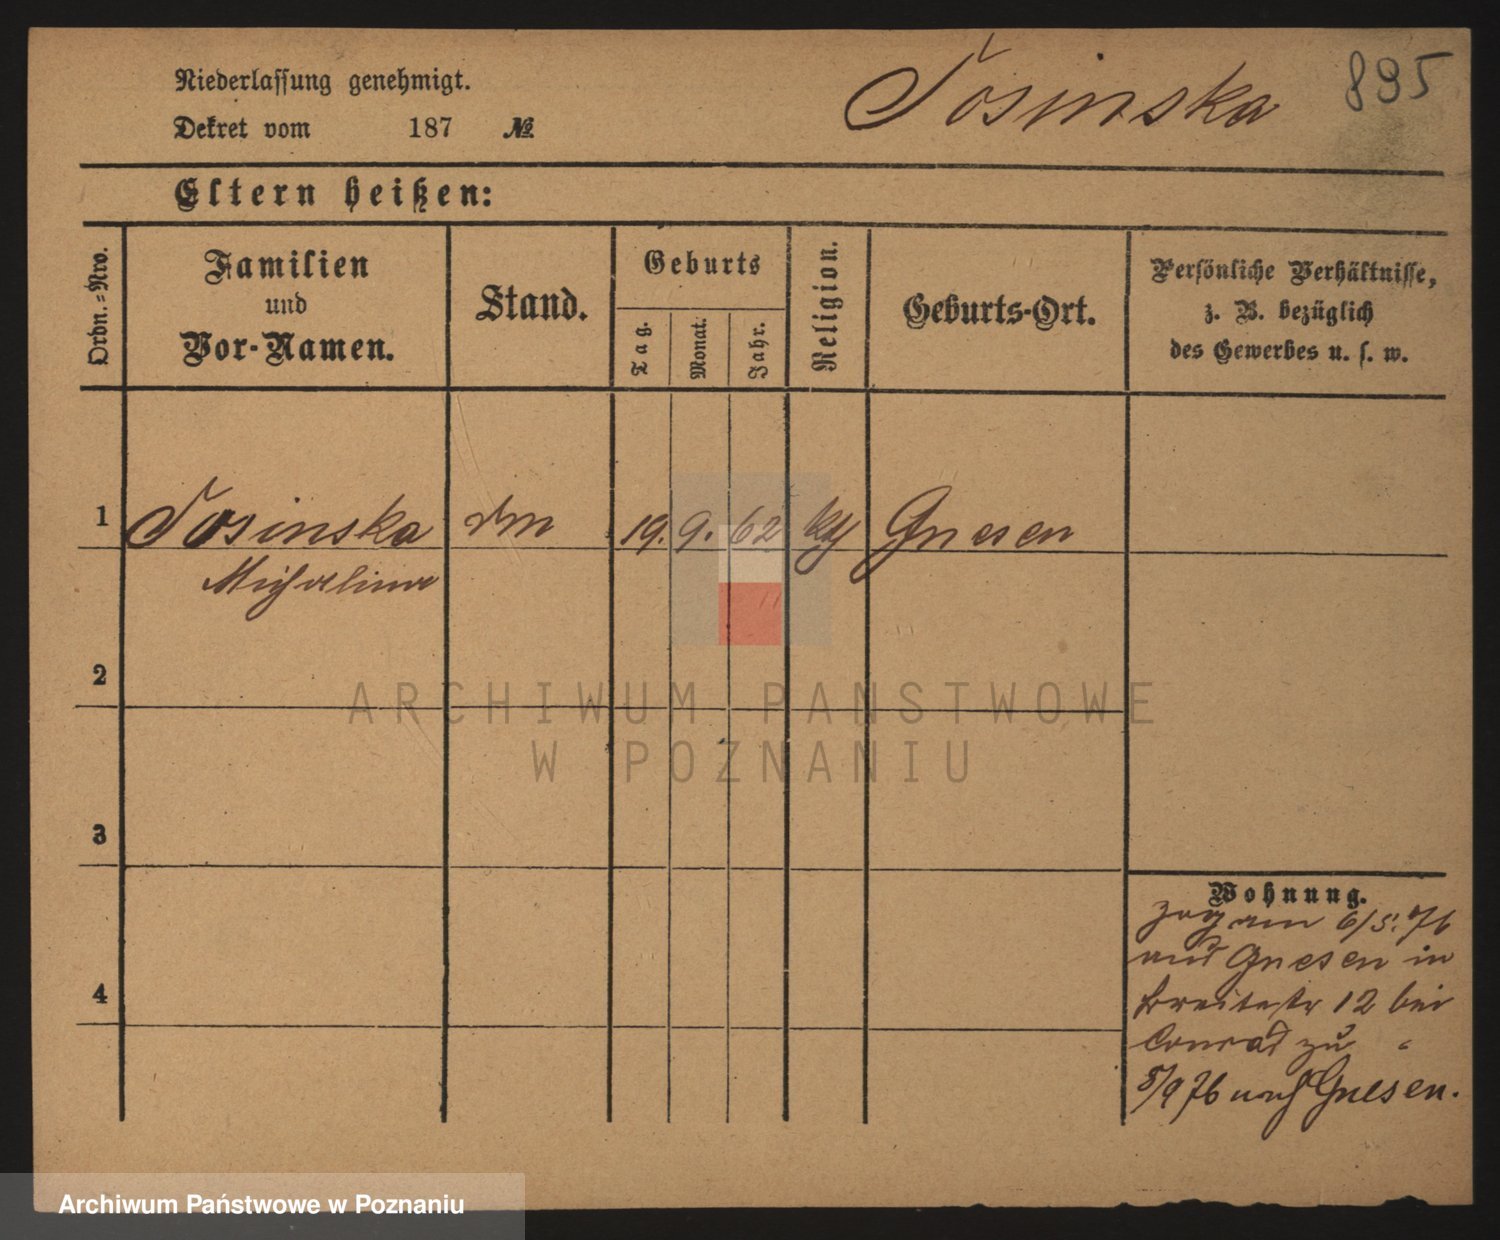 Niederlassung genehmigt.
Dekret vom 187 №
Tosinska
895
Eltern heißen:
Ordn.-Nro.
Familien
und
Vor-Namen.
Stand.
Geburts
Tag.
Monat.
Jahr.
Religion.
Geburts-Ort.
Persönliche Verhältnisse,
z. B. bezüglich
des Gewerbes u. s. w.
1 Tosinska 19. 9. 62 kth Gnesen
Michalina
2
3
4
Wohnung.
zog am 6/5. 76
aus Gnesen in
Breitestr 12 bei
Conrad zu
5/9 76 nach Gnesen.
ARCHIWUM PANSTWOWE
W POZNANIU
Archiwum Państwowe w Poznaniu